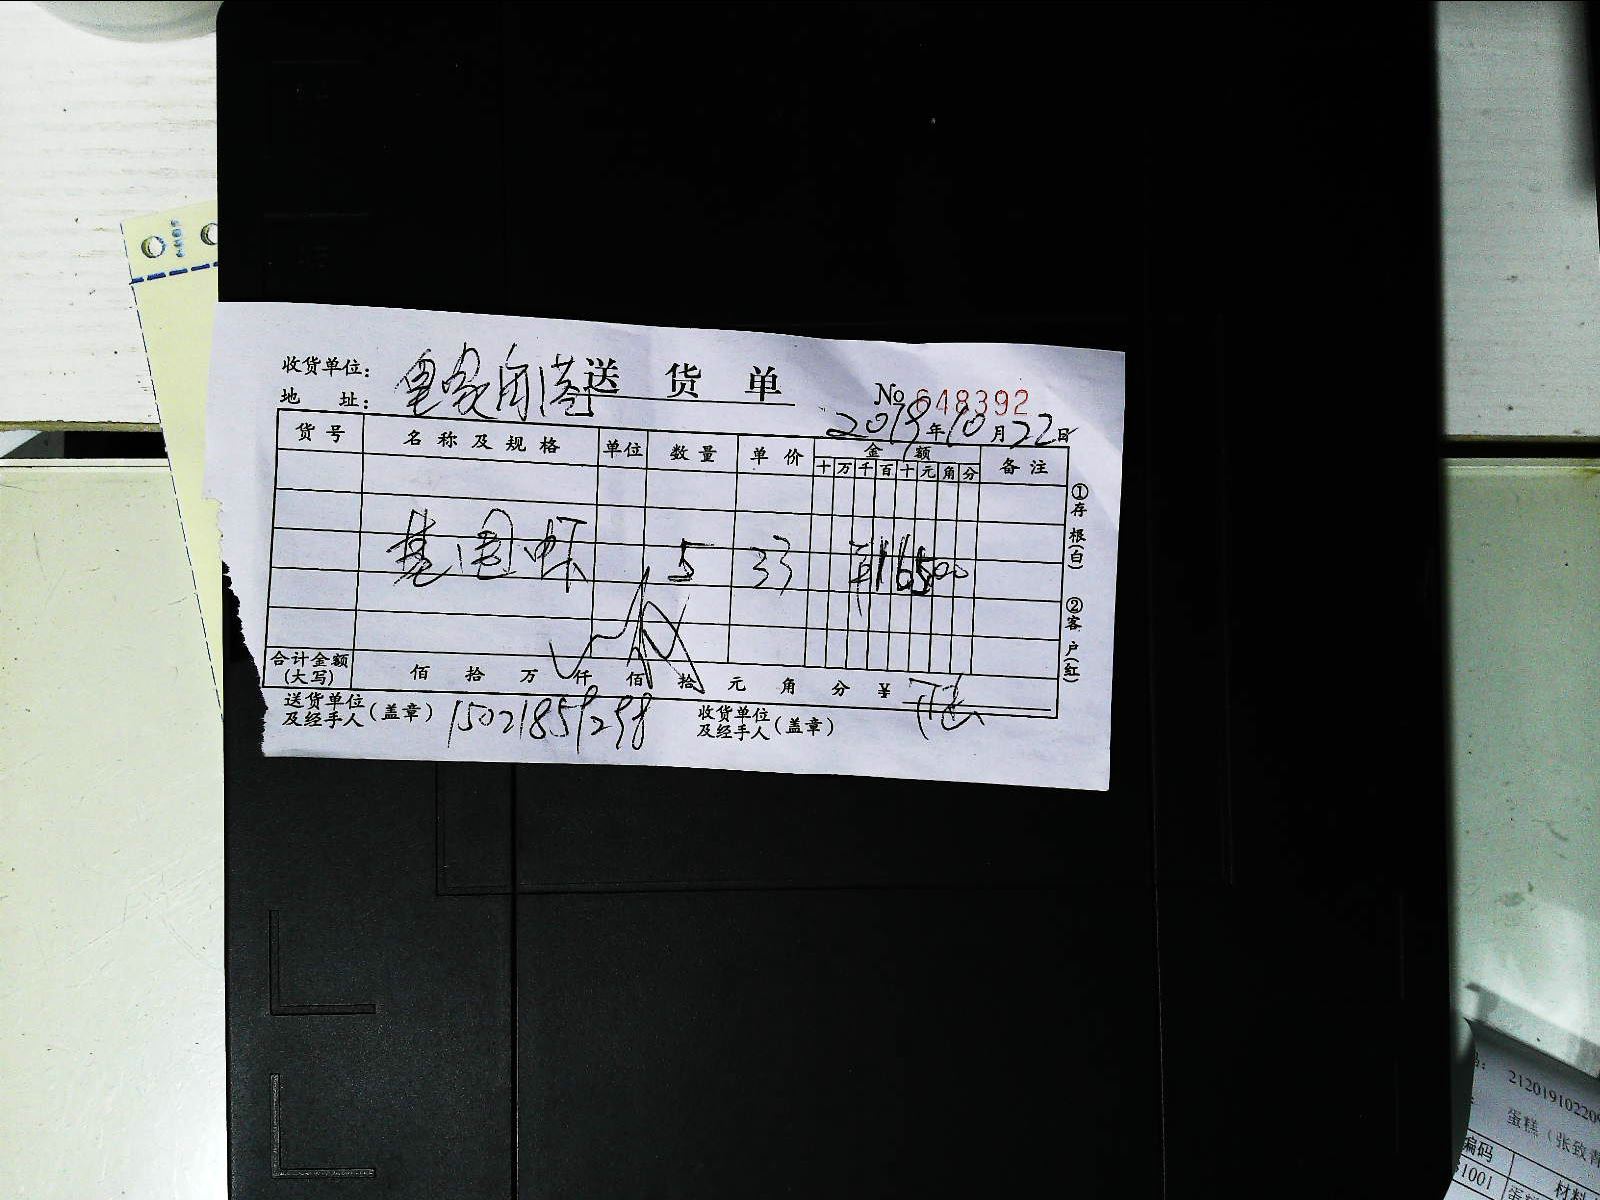 收货单位: 送货单
№ 648392
地 址:
2019年10月22日
货号 名称及规格 单位 数量 单价 金额 备注
十 万 千 百 十 元 角 分
基围虾 5 33 16500
合计金额(大写) 佰 拾 万 仟 佰 拾 元 角 分 ¥
送货单位及经手人(盖章) 15021859298 收货单位及经手人(盖章)
①存根(白) ②客户(红)
212019102209
蛋糕(张致青
编码
材料